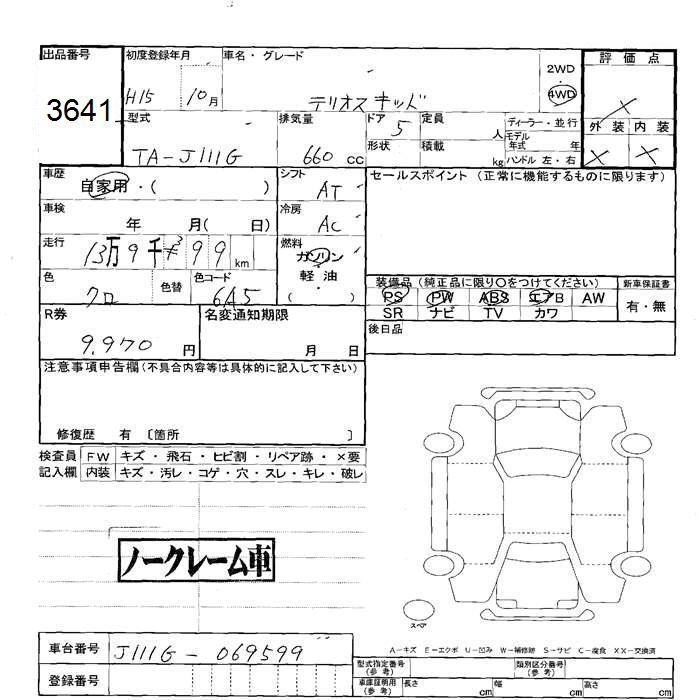 出品番号
3641
初度登録年月
H15 10月
車名・グレード
テリオスキッド
2WD
・
4WD
評価点
×
外装 内装
× ×
型式
TA-J111G
排気量
660 cc
ドア
5
形状
定員
人
積載
kg
ディーラー・並行
モデル
年式 年
ハンドル 左・右
車歴
自家用・( )
シフト
AT
セールスポイント (正常に機能するものに限ります)
車検
年 月( 日)
冷房
AC
走行
13万9千 99 km
燃料
ガソリン
軽・油
( )
色
クロ
色替
色コード
6A5
装備品 (純正品に限り○をつけてください)
PS PW ABS エアB AW
SR ナビ TV カワ
新車保証書
有・無
R券
9,970 円
名変通知期限
月 日
後日品
注意事項申告欄(不具合内容等は具体的に記入して下さい)
修復歴 有 〔箇所 〕
検査員
記入欄
FW キズ・飛石・ヒビ割・リペア跡・×要
内装 キズ・汚レ・コゲ・穴・スレ・キレ・破レ
ノークレーム車
スペア
A-キズ E-エクボ U-凹み W-補修跡 S-サビ C-腐食 XX-交換済
車台番号
J111G-069599
登録番号
型式指定番号
(参考)
類別区分番号
(参考)
車庫証明用
(参考)
長さ cm 幅 cm 高さ cm